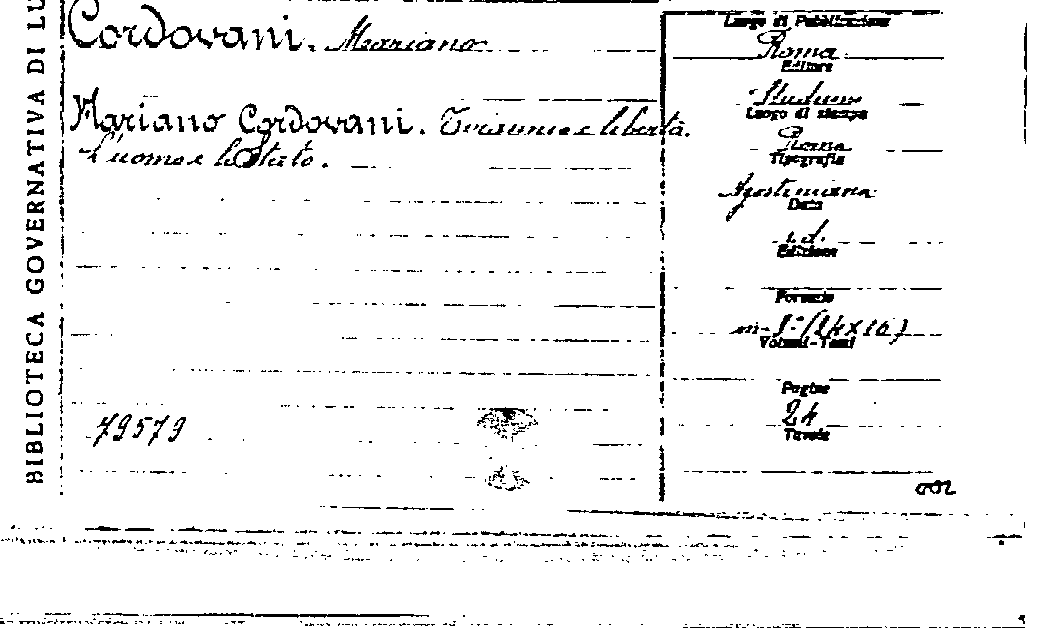 BIBLIOTECA GOVERNATIVA DI LU
Cordovani. Mariano
Mariano Cordovani. Tirannia e libertà.
L'uomo e lo Stato.
79579
Luogo di Pubblicazione
Roma
Editore
Studium
Luogo di stampa
Roma
Tipografia
Agostiniana
Data
s. d.
Edizione
Formato
m-8° (24x16)
Volumi-Tomi
Pagine
24
Tavole